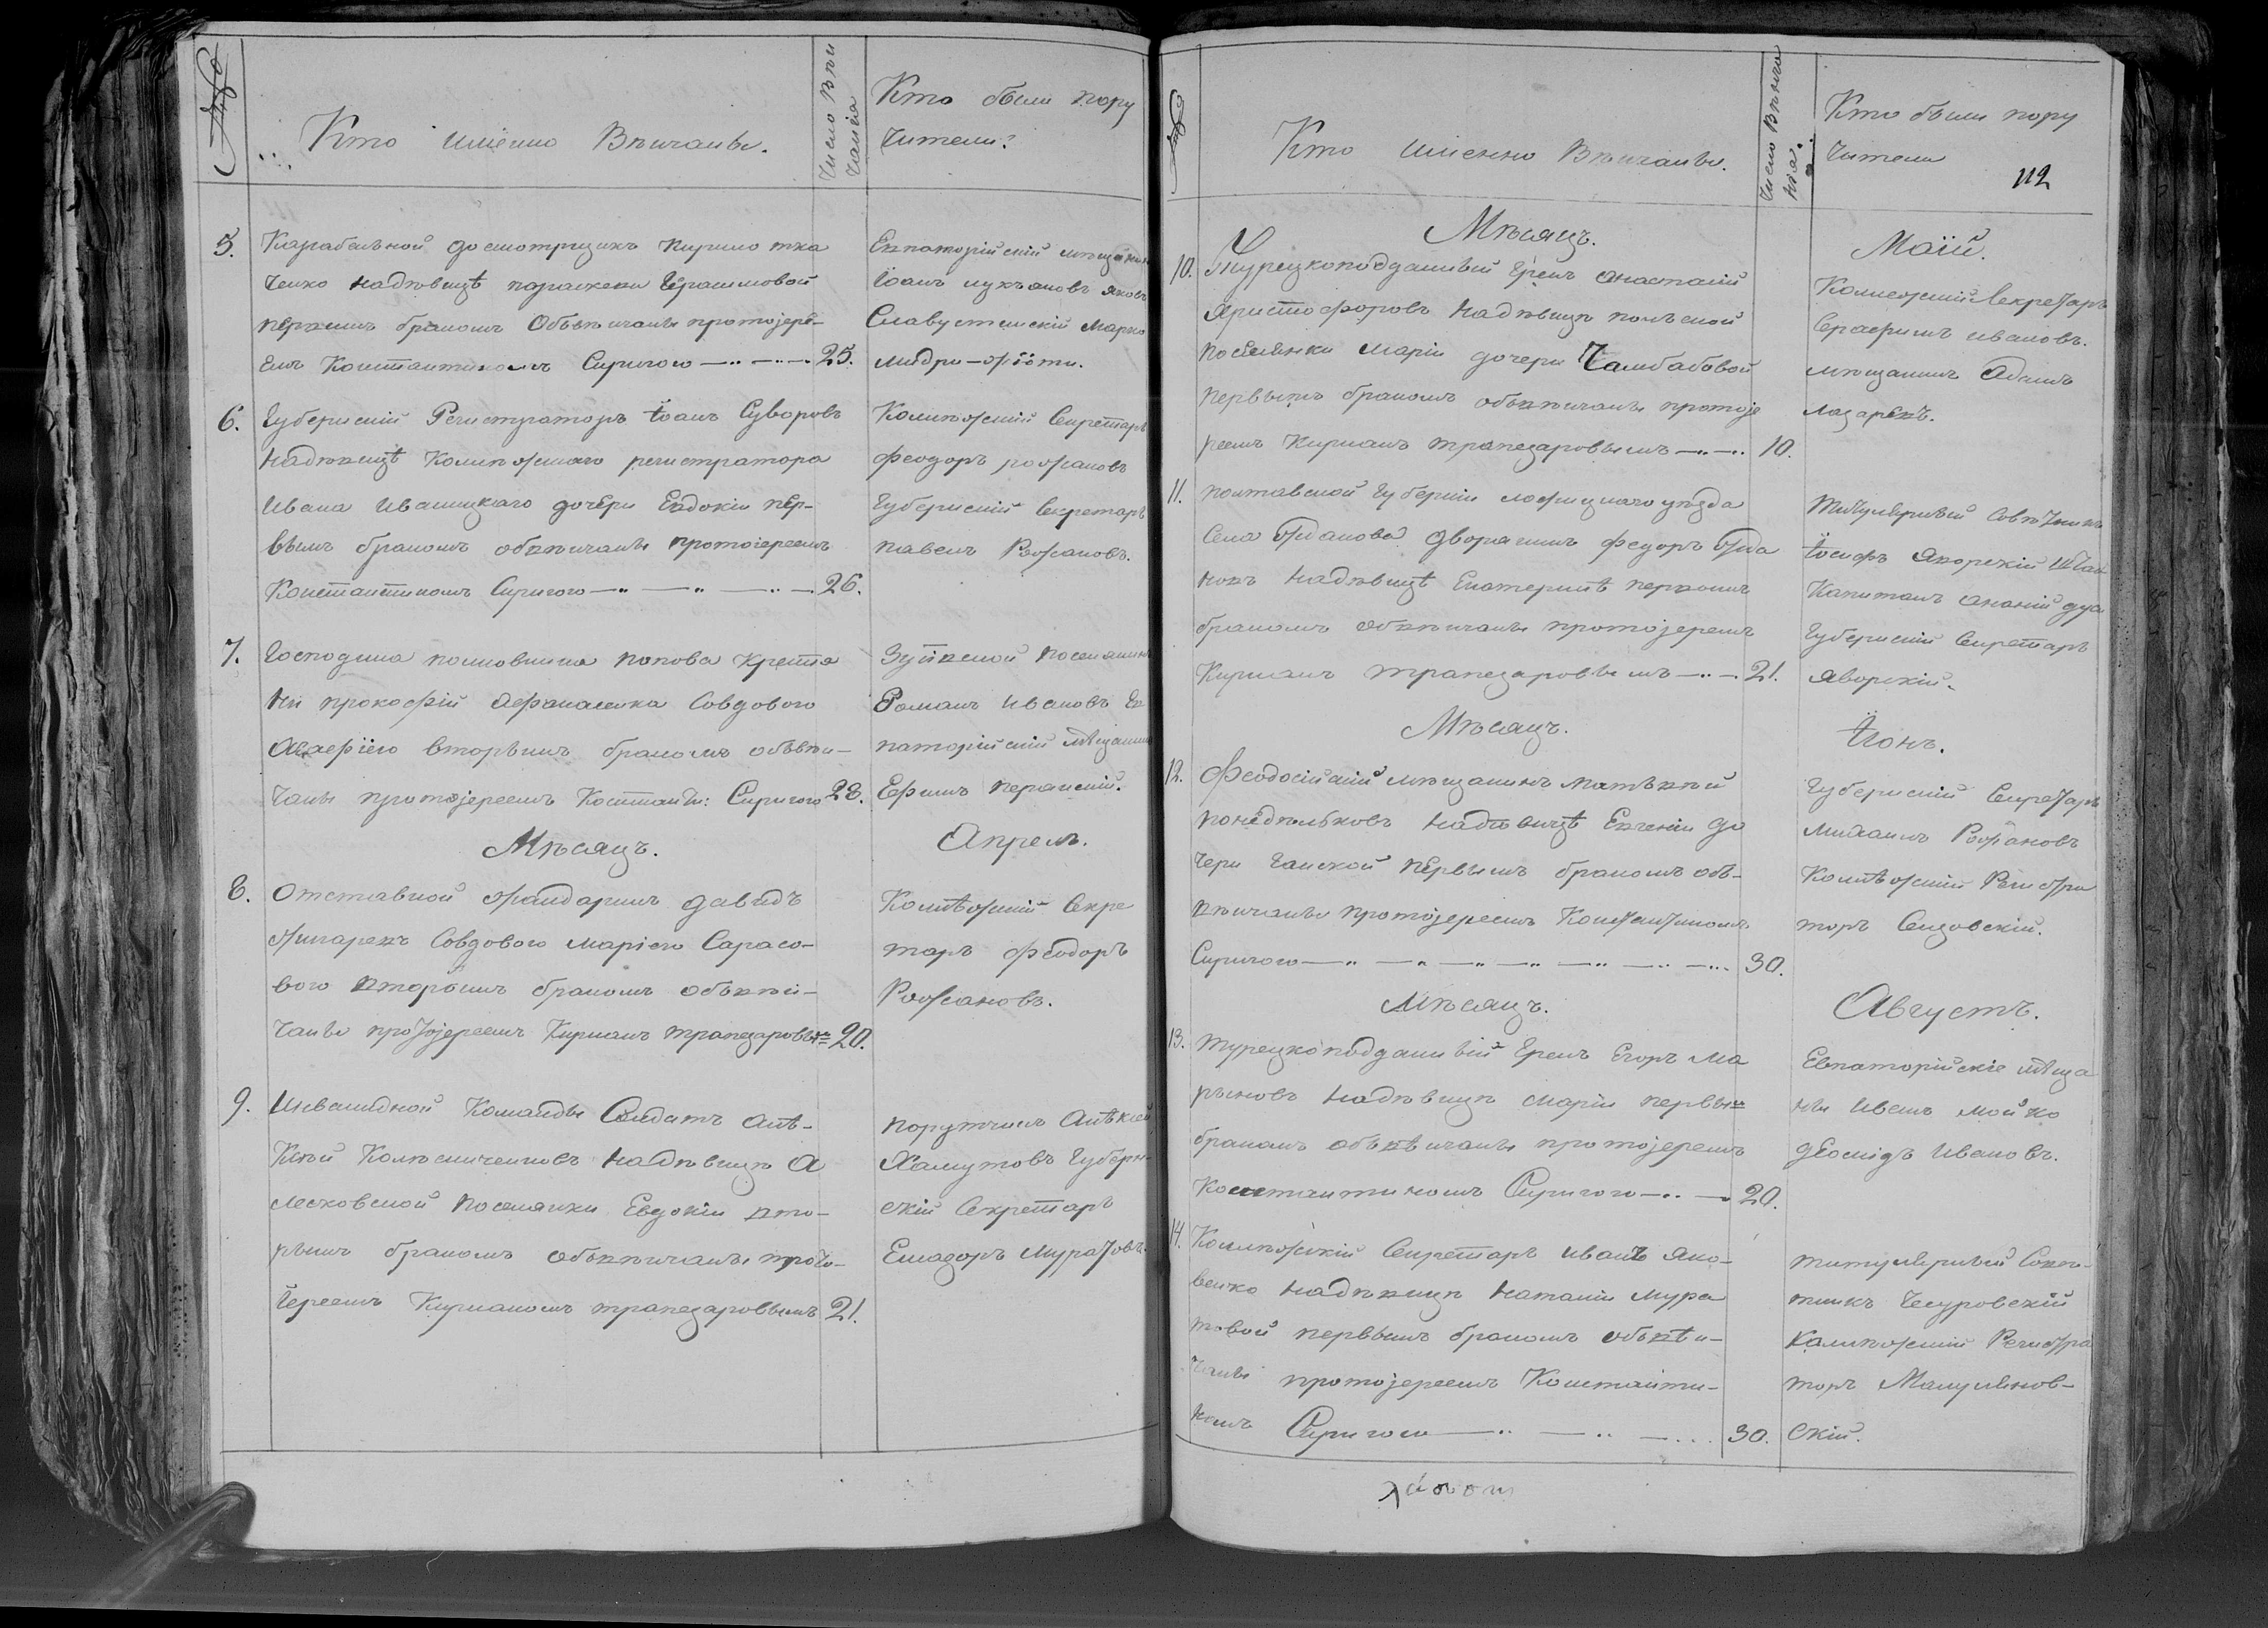 №
Кто именно Вѣнчанъ.
Число Вѣн
чанія
Кто были пору
чители?
5.
Карабельной досмотрщикъ Кирило тка
ченко надѣвицѣ параскеви Герасимовой
первымъ бракомъ Обвѣнчаны протоіере-
емъ Константиномъ Сиригого 25.
Евпаторійскій мещанинъ
Іоанъ лукъяновъ яковъ
Славустенскій Марко
6.
Губернскій Регистраторъ іоанъ Суворовъ
надѣвицѣ Колležскаго регистратора
Ивана Иваницкаго дочери Евдокіи пер-
вымъ бракомъ обвѣнчаны протоіереемъ
Константиномъ Сиригого 26.
Колѣжскій Секретарь
феодоръ рожановъ
Губернскій Секретарь
павелъ Рожановъ.
7.
Господина полковника попова Крестья
нъ прокофій Афанасенко Совдового
вторымъ бракомъ обвѣн-
чаны протоіереемъ Костанти: Сиригого 28.
Зуйвской поселянинъ
Романъ Ивановъ Ев
паторійскій мѣщанинъ
Ефимъ
Мѣсяцъ.
Апрель.
8.
Отставной жандармъ давидъ
Совдового маріею Сарасо-
вого вторымъ бракомъ обвѣн-
чаны протоіереемъ Кирианъ трапезаровымъ 20.
Колѣжскій Секре
тарь феодоръ
Рожановъ.
9.
Инвалидной Команды Солдатъ Алѣ-
ксѣй Колесниченковъ надѣвицѣ А
лесковской поселянки Евдокіи вто-
рымъ бракомъ обвѣнчаны прото-
іереемъ Кирианомъ трапезаровымъ 21.
поручикъ Алѣксей
Хамутовъ Губерн-
скій Секретарь
Елиазоръ Муратовъ.
№
Кто именно Вѣнчанъ.
Число Вѣнча
нія.
Кто были пору
чители
112
Мѣсяцъ.
Маій.
10.
Турецкоподданный Грекъ Анастасій
Христофоровъ надѣвицѣ польской
поселянки Маріи дочери Чамбабовой
первымъ бракомъ обвѣнчаны протоіе
реемъ Кирианъ трапезаровымъ 10.
Колležскій Секретарь
Серафимъ ивановъ.
мѣщанинъ Адамъ
лазаревъ.
11.
полтавской Губерніи лофицкаго уезда
Села Жданова дворянинъ федоръ Жда
новъ надѣвицѣ Екатеринѣ первымъ
бракомъ обвѣнчаны протоіереемъ
Кирианъ трапезаровымъ 21.
титулярный Совѣтникъ
іосифъ Яворскій Штабъ
Капитанъ ананій дуа
Губернскій Секретарь
яворскій.
Мѣсяцъ.
Іюнъ.
12.
Феодосійскій мѣщанинъ матвѣй
понедѣльковъ надѣвицѣ Евгеніи до
чери Ганской первымъ бракомъ обв-
ѣнчаны протоіереемъ Константиномъ
Сиригого 30.
Губернскій Секретарь
михаилъ Рожановъ
Колѣжскій Регистра
торъ Сицовскій.
Мѣсяцъ.
Августъ.
13.
турецкоподданный Грекъ Егоръ Ма
рьновъ надѣвицѣ Маріи первымъ
бракомъ обвѣнчаны протоіереемъ
Константиномъ Сиригого 20.
Евпаторійскіе мѣща
нъи Иванъ мойко
Ивановъ.
14.
Колѣжскій Секретарь иванъ Яко-
венко надѣвицѣ наталіи Мура
товой первымъ бракомъ обвѣн-
чаны протоіереемъ Константи-
номъ Сиригого 30.
титулярный Совѣ-
тникъ Чецуровскій
Колѣжскій Регистра
торъ Мануйлов-
скій.